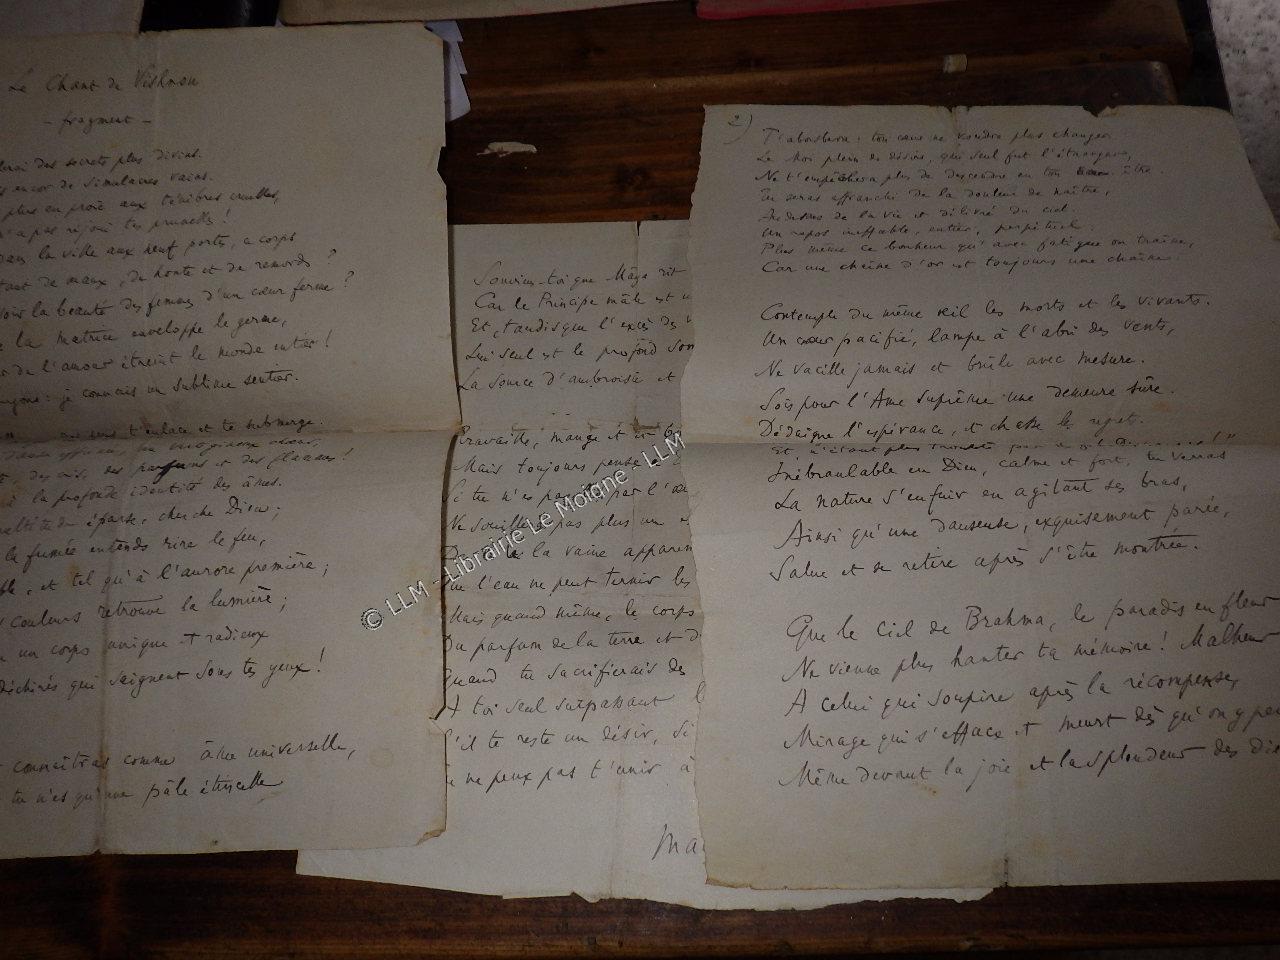 Le Chant de Vishnou
- fragment -
des secrets plus divins.
encor de simulacres vains.
plus en proie aux ténèbres cruelles,
n'a pas réjoui tes prunelles !
dans la ville aux neuf portes, a corps
tant de maux, de honte et de remords ?
la beauté des femmes d'un cœur ferme ?
la matrice enveloppe le germe,
de l'amour étreint le monde entier !
: je connais un sublime sentier.
t'enlace et te submerge.
des parfums et des flammes !
à la profonde identité des âmes.
éparse, cherche Dieu ;
la fumée entends rire le feu,
et tel qu'à l'aurore première ;
couleurs retrouve la lumière ;
un corps unique et radieux
déchirés qui saignent sous tes yeux !
connaîtras comme âme universelle,
tu n'es qu'une pâle étincelle
Souviens-toi que Mâya rit
Car le Principe mâle est
Et, tandis que l'excès des
Lui seul est le profond
La source d'ambroisie et
Travaille, mange et
Mais toujours pense à
Si tu n'es pas par l'
Ne souille pas plus un
la vaine apparen
Que l'eau ne peut ternir les
Mais quand même, le corps
Du parfum de la terre et d
Quand tu sacrifierais des
A toi seul surpassant
S'il te reste un désir, si
ne peux pas t'unir à
Ma
2)
T'absorbera : ton cœur ne voudra plus changer
Le Moi plein de désirs, qui seul fut l'étranger,
Ne t'empêchera plus de descendre en ton être.
Tu seras affranchi de la douleur de naître,
Au dessus de la vie et délivré du ciel.
Un repos ineffable, entier, perpétuel.
Plus même ce bonheur qu'avec fatigue on traîne,
Car une chaîne d'or est toujours une chaîne.
Contemple du même œil les morts et les vivants.
Un cœur pacifié, lampe à l'abri des vents,
Ne vacille jamais et brûle avec mesure.
Sois pour l'Ame suprême une demeure sûre.
Dédaigne l'espérance, et chasse le regret.
Et, n'étant plus
Inébranlable en Dieu, calme et fort, tu verras
La nature s'enfuir en agitant ses bras,
Ainsi qu'une danseuse, exquisement parée,
Salue et se retire après s'être montrée.
Que le Ciel de Brahma, le paradis en fleur
Ne vienne plus hanter ta mémoire ! Malheur
A celui qui soupire après la récompense,
Mirage qui s'efface et meurt dès qu'on y pen
Même devant la joie et la splendeur des di
© LLM - Librairie Le Moigne - LLM